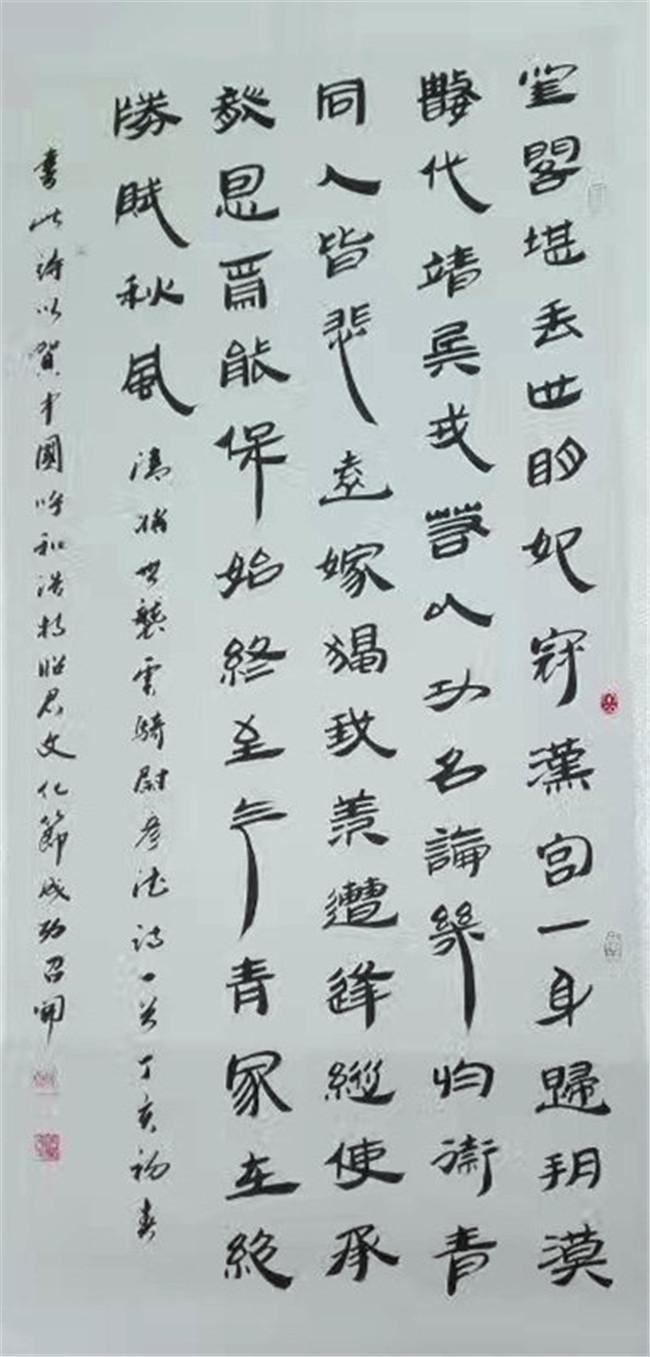 閨閣堪垂世明妃冠漢宮一身歸朔漠
數代靖兵戎若以功名論幾衛青
同人皆悲遠嫁獨我羨遭逢縱使承
恩焉能保始終至今青冢在絕
勝賦秋風 清世襲雲騎尉彥德詩一首丁亥初春
書此詩以賀中國呼和浩特昭君文化節成功召開